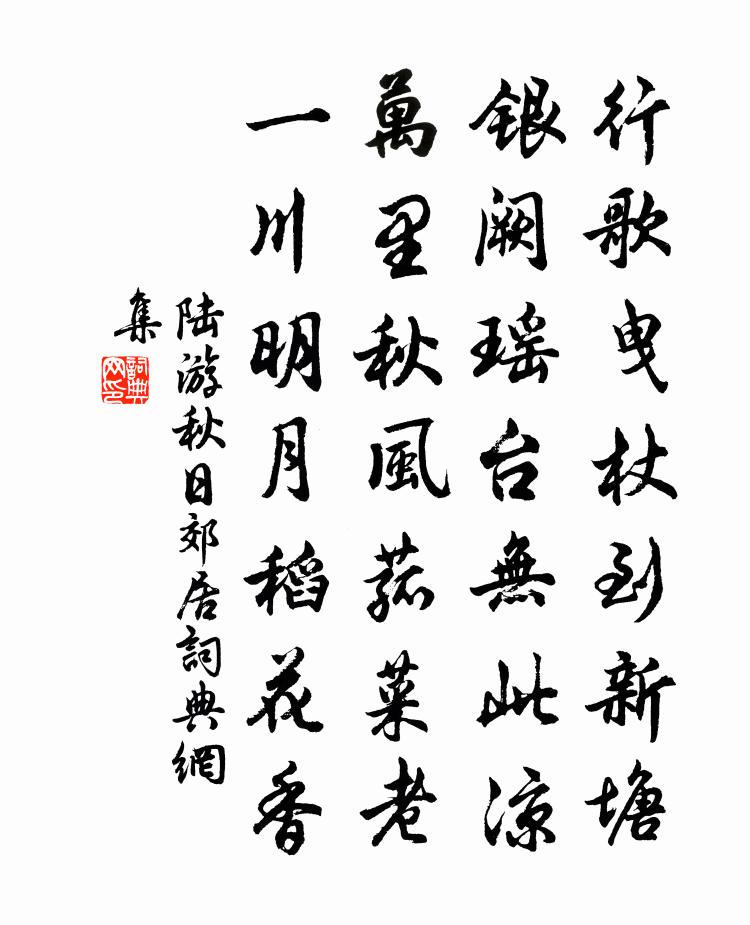 行歌曳杖到新塘
銀阙瑶台無此凉
萬里秋風菰菜老
一川明月稻花香
陆游秋日郊居詞典網
集
詞典网印